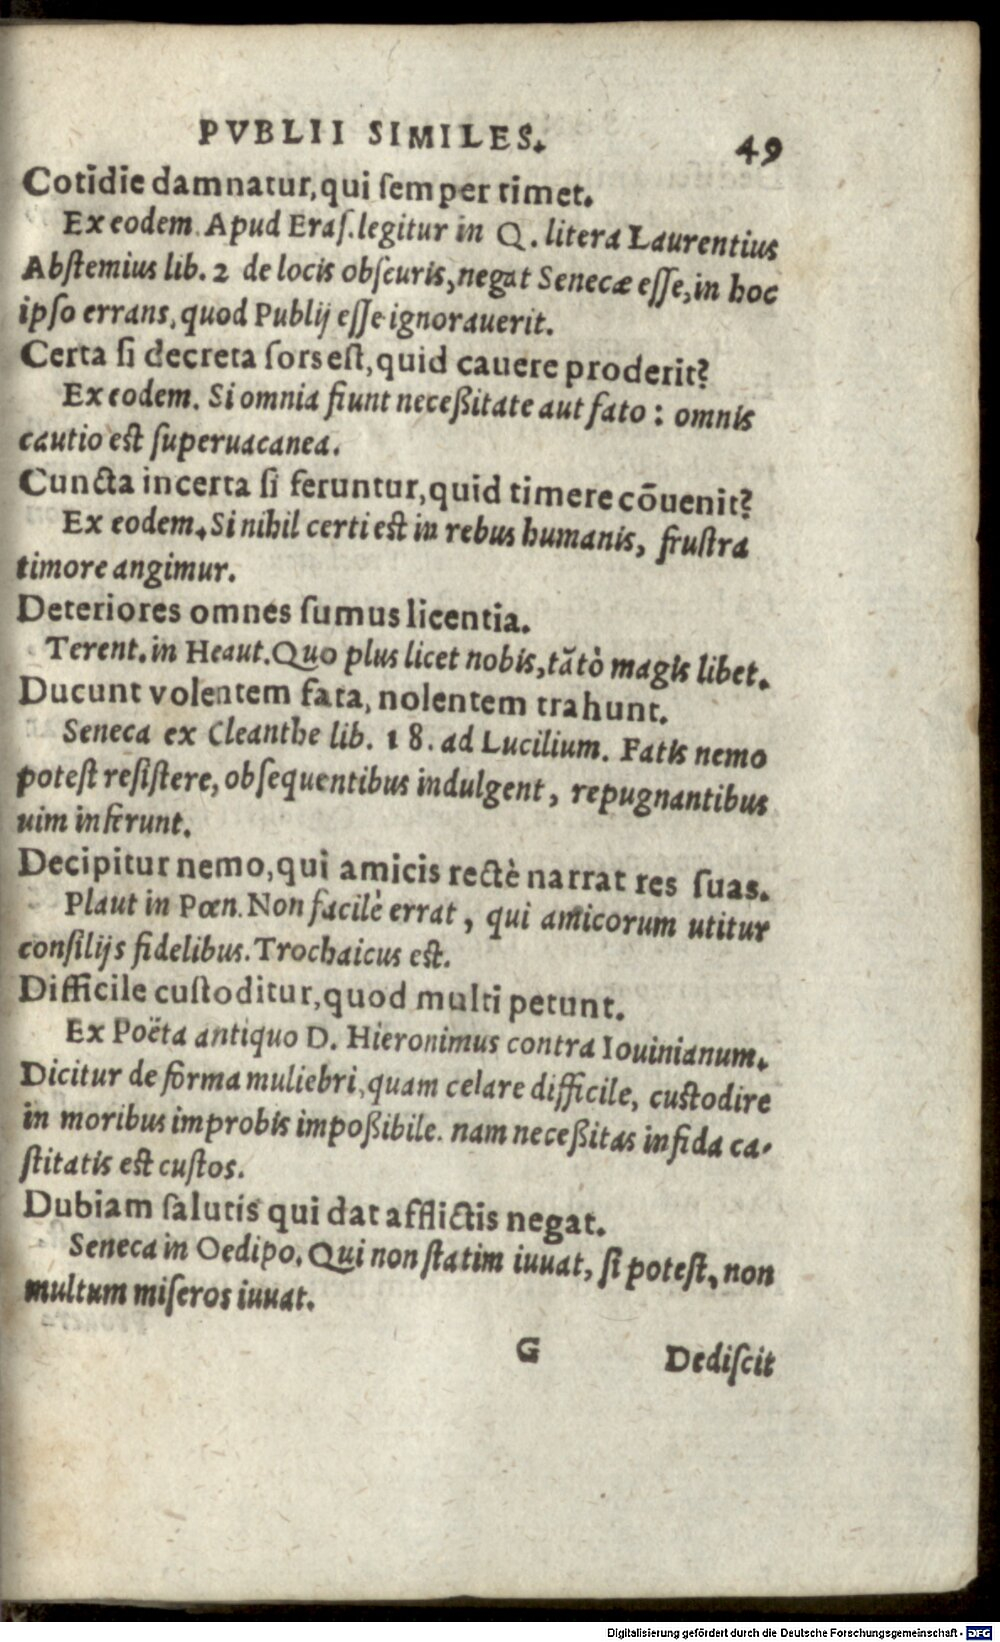 PVBLII SIMILES. 49
Cotidie damnatur, qui semper timet.
Ex eodem. Apud Eraſ. legitur in Q. litera Laurentius
Abſtemius lib. 2 de locis obſcuris, negat Senecæ eſſe, in hoc
ipſo errans, quod Publij eſſe ignorauerit.
Certa ſi decreta ſors eſt, quid cauere proderit?
Ex eodem. Si omnia fiunt neceßitate aut fato: omnis
cautio eſt ſuperuacanea.
Cuncta incerta ſi feruntur, quid timere cōuenit?
Ex eodem. Si nihil certi eſt in rebus humanis, fruſtra
timore angimur.
Deteriores omnes ſumus licentia.
Terent. in Heaut. Quo plus licet nobis, tātò magis libet.
Ducunt volentem fata, nolentem trahunt.
Seneca ex Cleanthe lib. 18. ad Lucilium. Fatis nemo
poteſt reſiſtere, obſequentibus indulgent, repugnantibus
uim inferunt.
Decipitur nemo, qui amicis rectè narrat res ſuas.
Plaut in Pœn. Non facilè errat, qui amicorum utitur
conſilijs fidelibus. Trochaicus eſt.
Difficile cuſtoditur, quod multi petunt.
Ex Poëta antiquo D. Hieronimus contra Iouinianum.
Dicitur de forma muliebri, quam celare difficile, cuſtodire
in moribus improbis impoßibile. nam neceßitas infida ca-
ſtitatis eſt cuſtos.
Dubiam ſalutis qui dat afflictis negat.
Seneca in Oedipo. Qui non ſtatim iuuat, ſi poteſt, non
multum miſeros iuuat.
G Dediſcit
Digitalisierung gefördert durch die Deutsche Forschungsgemeinschaft - DFG